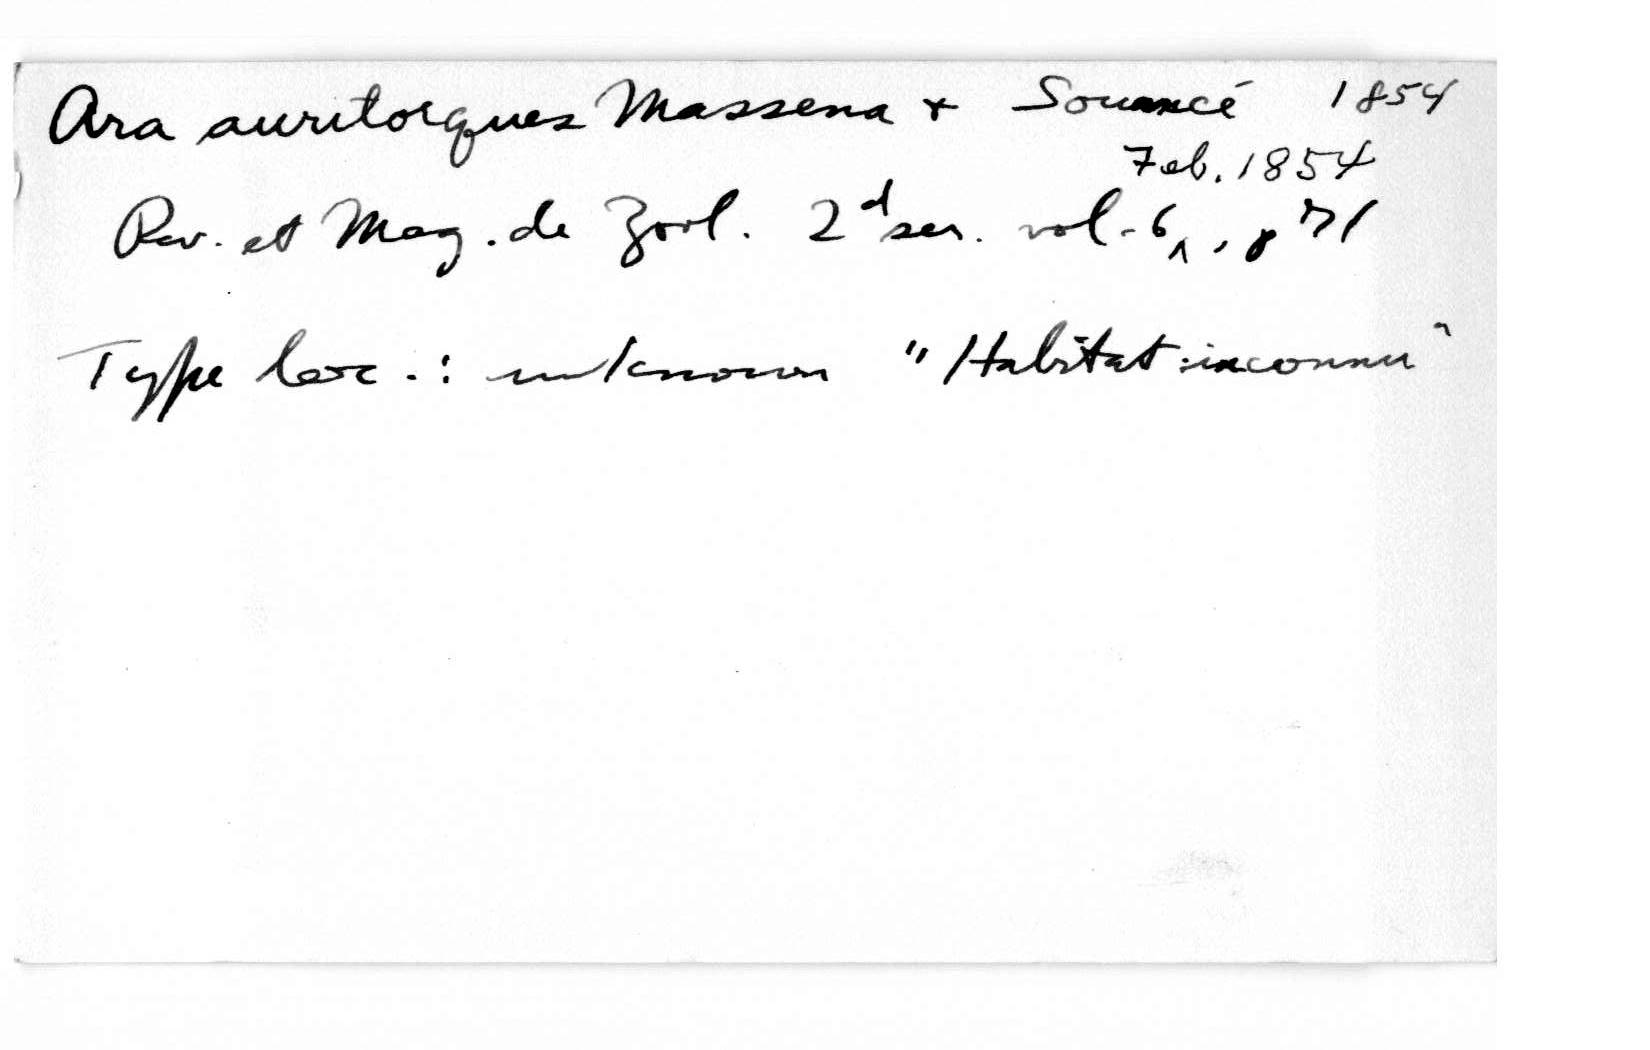 Ara auritorques Massena & Souancé 1854
Feb. 1854
Rev. et Mag. de Zool. 2d ser. vol. 6‸, p 71
Type loc.: unknown "Habitat: inconnu"